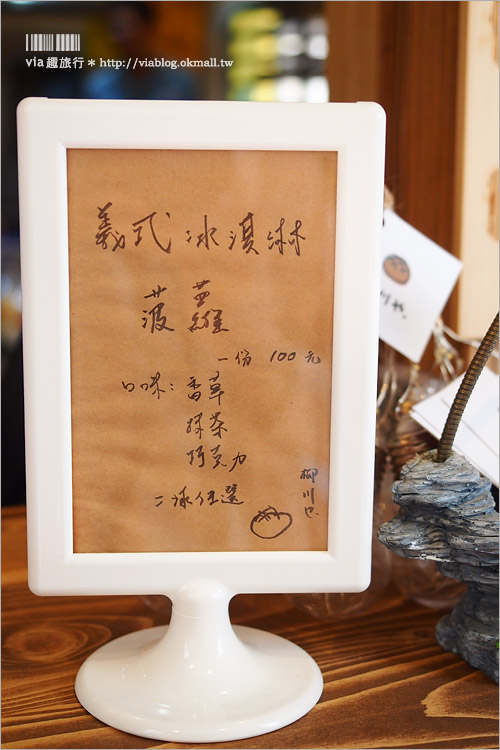 via趣旅行＊http://viablog.okmall.tw
義式冰淇淋
菠蘿
一份 100元
口味：香草
抹茶
巧克力
二球任選
柳川